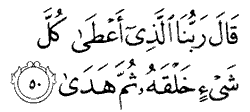 قَالَ رَبُّنَا ٱلَّذِىٓ أَعْطَىٰ كُلَّ
شَىْءٍ خَلْقَهُۥ ثُمَّ هَدَىٰ ٥٠